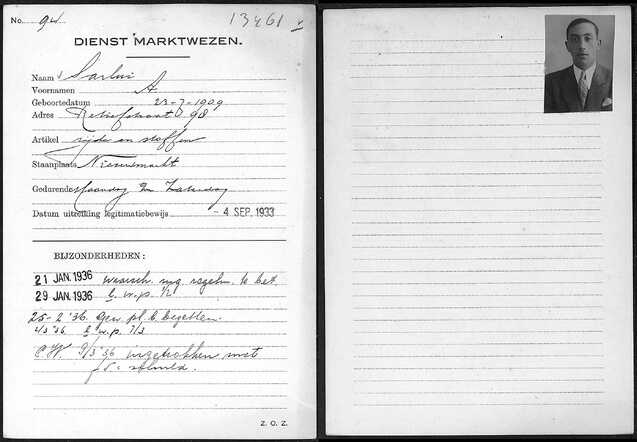 No. 94 13461 v
DIENST MARKTWEZEN.
Naam Sarlui
Voornamen A.
Geboortedatum 23-7-1909
Adres Retiefstraat 98
Artikel zijde en stoffen
Staanplaats Nieuwmarkt
Gedurende Maandag en Zaterdag
Datum uitreiking legitimatiebewijs - 4 SEP. 1933
BIJZONDERHEDEN:
21 JAN. 1936 waarsch. nog regelm. te bet.
29 JAN. 1936 b. w.p. 1/2
25-2 '36. gew. pl. b. bezetten.
4/3 '36 b. w.p. 7/3
9/3 '36 ingetrokken met
schuld.
Z. O. Z.